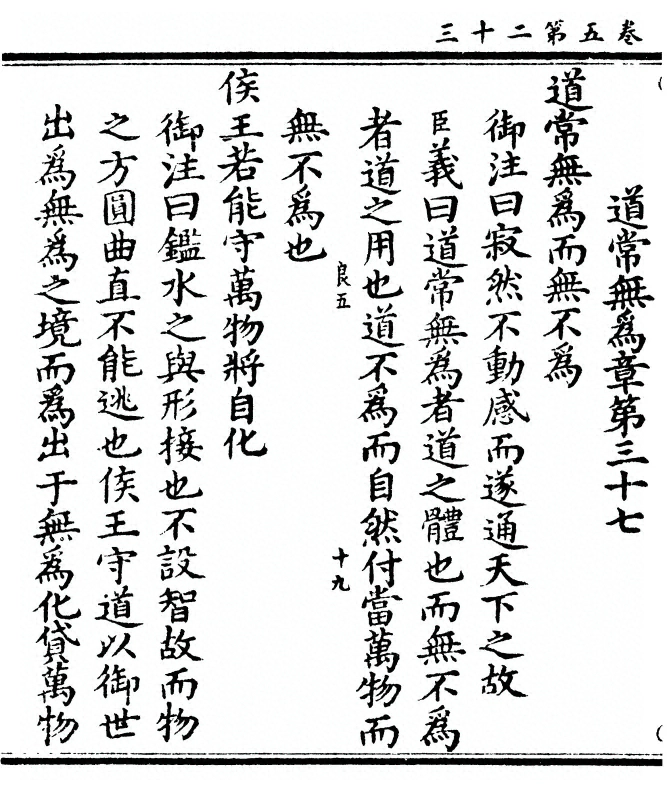 三十二第五卷
道常無爲章第三十七
道常無爲而無不爲
御注曰寂然不動感而遂通天下之故
臣義曰道常無爲者道之體也而無不爲
者道之用也道不爲而自然付當萬物而
良五
十九
無不爲也
侯王若能守萬物將自化
御注曰鑑水之與形接也不設智故而物
之方圓曲直不能逃也侯王守道以御世
出爲無爲之境而爲出于無爲化貸萬物